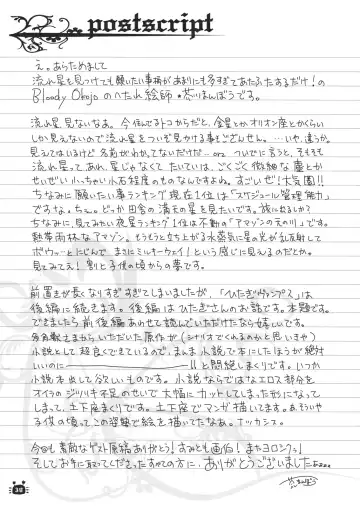 postscript
え。あらためまして
流れ星を見つけても願いたい事柄があまりにも多すぎてあたふたするだけ！の
Bloody Okojo のへたれ絵師
流れ星見ないなぁ。今住んでるトコからだと、金星とかオリオン座とかくらい
しか見えないので流れ星をついぞ見かける事もござんせん。…いや、違うか。
見えてはいるけど名前がわかってないだけだ…orz ついでに言うと、そもそも
流れ星ってあれ、星じゃなくてたいていは、ごくごく微細な塵とか
せいぜい小っちゃい小石程度のものなんですよね。すごいぜ！大気圏!!
ちなみに願いたい事ランキング現在1位は「スケジュール管理能力」
ですな。ちぇ。どっか田舎の満天の星を見たいです。旅に出るしか？
ちなみに、見てみたい夜星ランキング1位は不動の「アマゾンの天の川」です。
熱帯雨林なアマゾン。もうもうと立ち上がる水蒸気に星の光が乱反射して
ボウゥっとにじんで まさにミルキーウェイ！という感じに見えるのだとか。
見てみてぇ！割と子供の頃からの夢です。
前置きが長くなりすぎてしまいましたが、「ひたぎヴァンプス」は
後編に続きます。後編はひたぎさんのお話です。本題です。
できましたら前後編あわせて読んでいただけたなら嬉しいです。
いただいた原作が（シナリオでくれるのかと思いきや）
小説として超良くできているので、まんま小説で本にしたほうが絶対
いいのに――!!と悶絶しまくりです。いつか
小説本出して欲しいものです。小説ならではなエロス部分を
オイラのジツリキ不足のせいで大幅にカットしてしまった形になって
しまって、土下座まくりです。土下座でマンガ描いてます。
子供の頃ってこの姿勢で絵を描いてたなぁ。ナツカシス。
今回も素敵なゲスト原稿ありがとう！すみとも画伯！またヨロシク。！
そしてお手に取ってくださったすべての方に、ありがとうございました
38